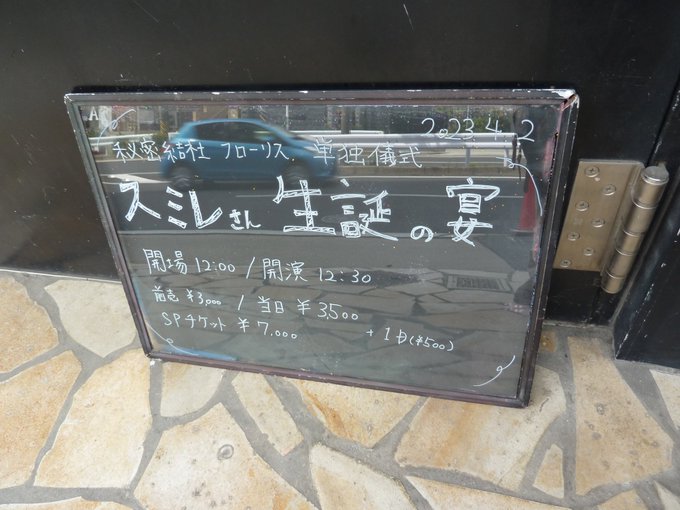 2023.4.2
秘密結社 フローリス 単独儀式
スミレさん 生誕の宴
開場 12:00 / 開演 12:30
前売 ¥3,000 / 当日 ¥3,500
SPチケット ¥7,000 + 1D(¥500)